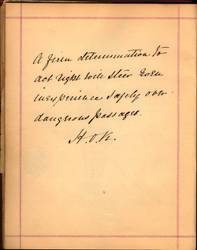 A firm determination to
act right will steer even
inexperience safely over
dangerous passages.
H. O. K.